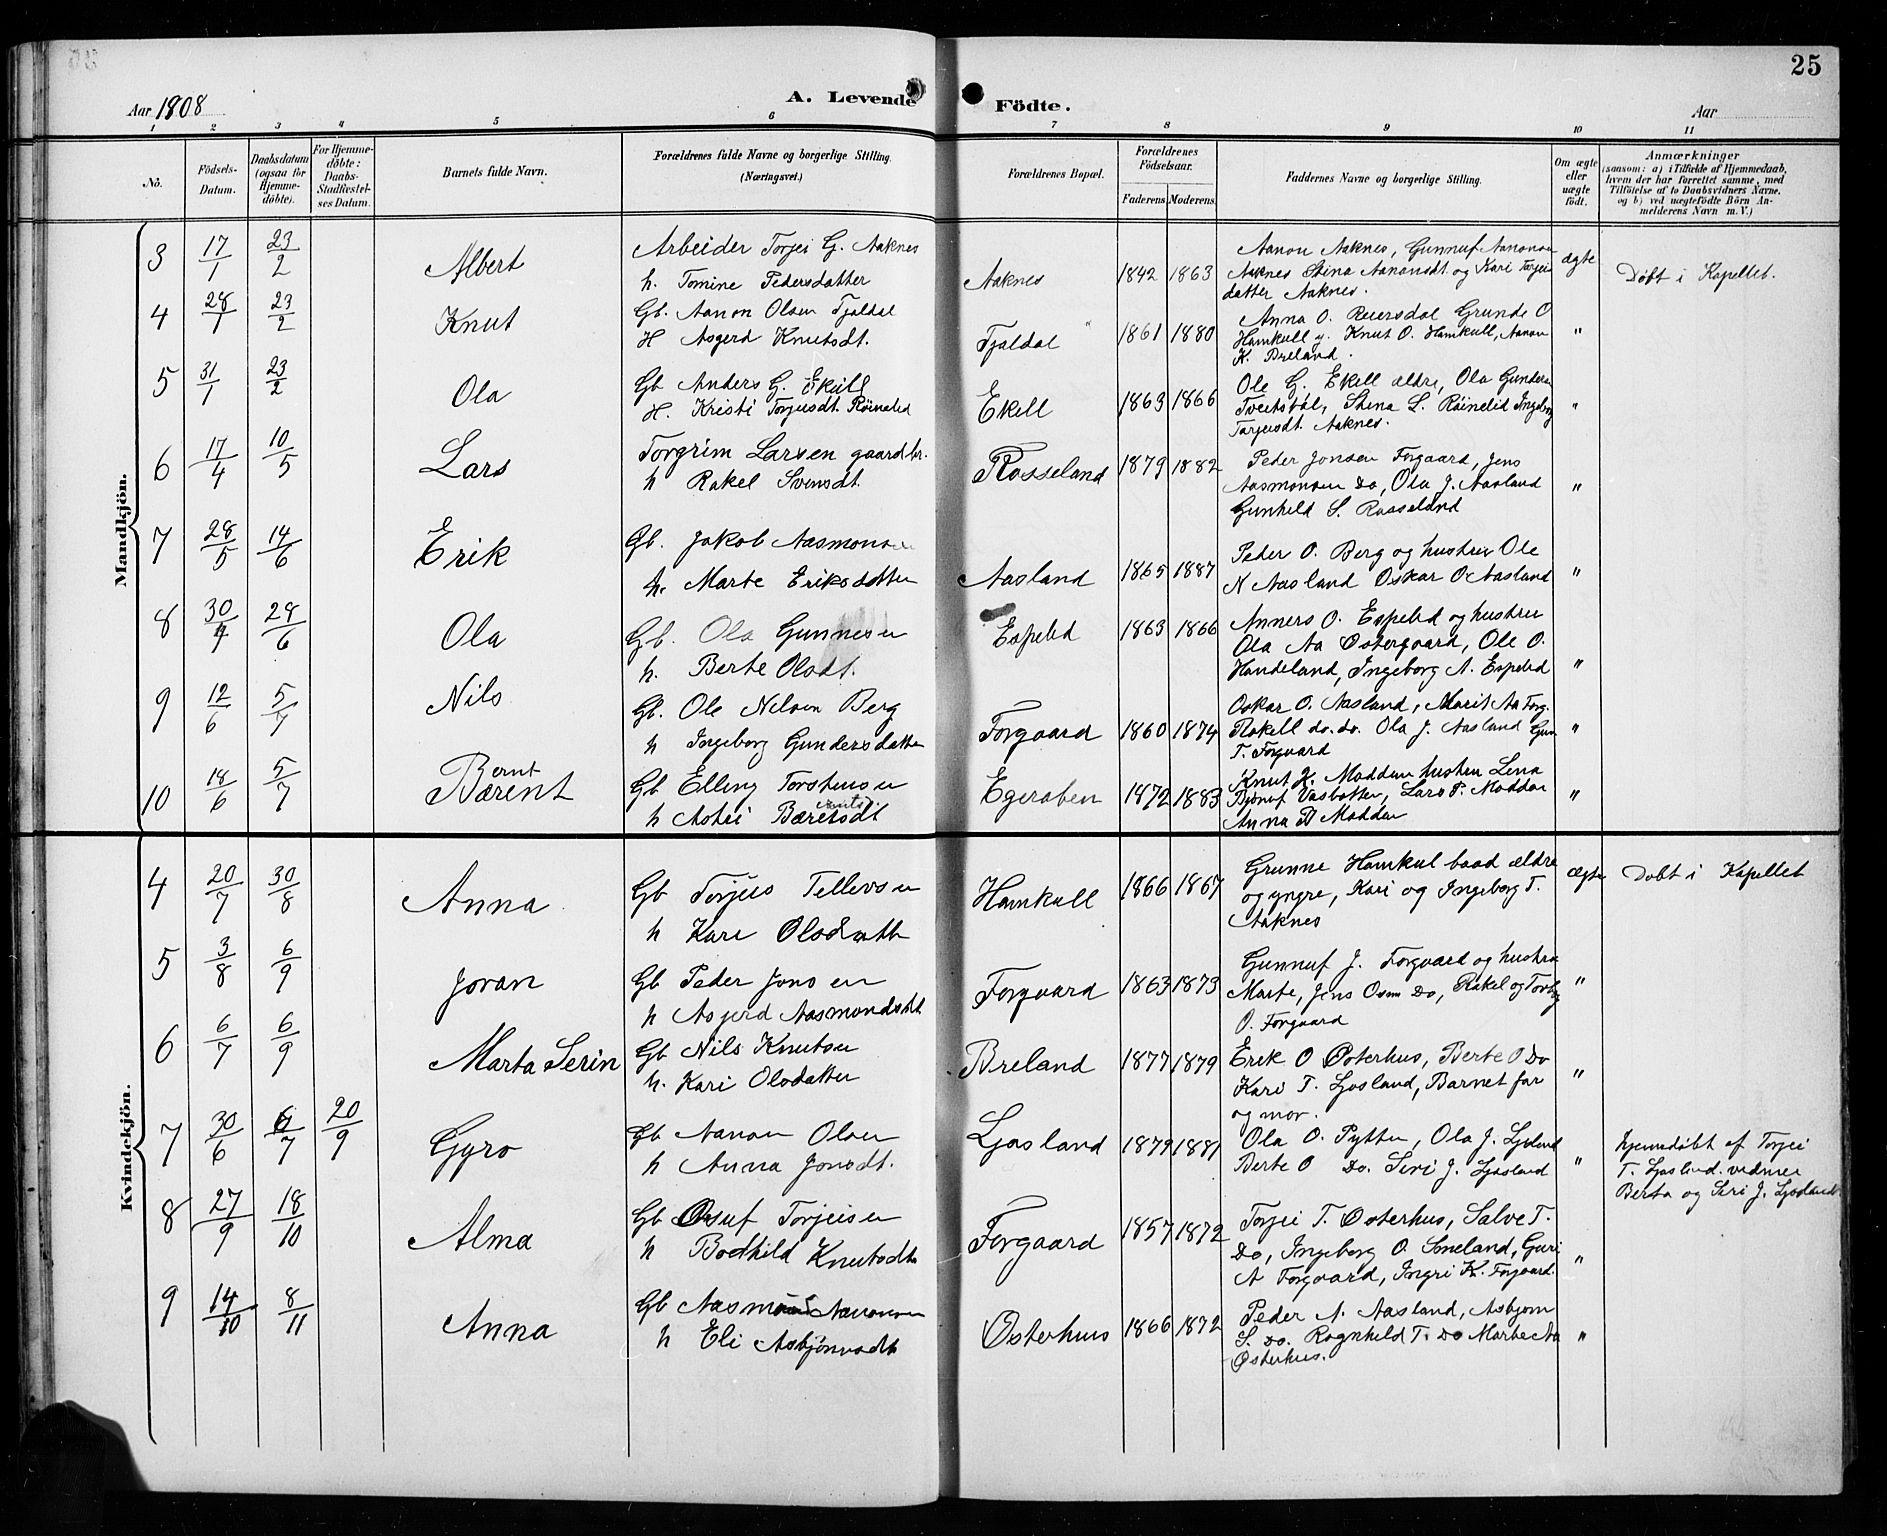 25
Aar 1908
A. Levende Födte.
Aar
1 2 3 4 5 6 7 8 9 10 11
No.
Födsels-Datum.
Daabsdatum (ogsaa for Hjemme-döbte).
For Hjemme-döbte: Daabs-Stadfæstel-ses Datum.
Barnets fulde Navn.
Forældrenes fulde Navne og borgerlige Stilling. (Næringsvei.)
Forældrenes Bopæl.
Forældrenes Födselsaar.
Faderens Moderens
Faddernes Navne og borgerlige Stilling.
Om ægte eller uægte födt.
Anmærkninger
(saasom: a) i Tilfælde af Hjemmedaab, hvem der har forrettet samme, med Tilföielse af to Daabsvidners Navne, og b) ved uægtefödte Börn An-melderens Navn m. V.)
Mandkjön.
3 17/1 23/2 Albert Arbeider Torjei G. Aaknes
h. Tomine Pedersdatter
Aaknes 1842 1863
Aanon Aaknes, Gunnuf Aanonsen
Aaknes Stina Aanonsdt og Kari Torjei
datter Aaknes.
ægte Döbt i Kapellet.
4 28/1 23/2 Knut Gb. Aanon Olsen Fjaldal
H Asgerd Knutsdt.
Fjaldal 1861 1880
Anna O. Reiersdal Grunde O
Hamkull og Knut O. Hamkull, Aanon
K. Breland.
"
5 31/1 23/2 Ola Gb Anders G. Ekill
H. Kristi Torjusdt. Röinelid
Ekell 1863 1866
Ole G. Ekell ældre, Ola Gundersen
Tveitsböl, Stina L. Röinelid Ingeborg
Torjeusdt. Aaknes.
"
6 17/4 10/5 Lars Torgrim Larsen gaardbr.
h Rakel Svensdt
Rosseland 1879 1882
Peder Jonsen Forgaard, Jens
Aasmonsen Do, Ola J. Aasland
Gunhild S. Rosseland
"
7 28/5 14/6 Erik Gb. Jakob Aasmonsen
h. Marte Eriksdatter
Aasland 1865 1887
Peder O. Berg og hustru Ole
N Aasland Oskar O Aasland
"
8 30/4 28/6 Ola Gb. Ola Gunnesen
h. Berte Olsdt.
Espelid 1863 1866
Anners O. Espelid og hustru
Ola Aa Östergaard, Ole O.
Handeland, Ingeborg A. Espelid
"
9 12/6 5/7 Nils Gb. Ole Nilsen Berg
h Ingeborg Gundersdatter
Forgaard 1860 1874
Oskar O. Aasland, Marit Aa Forg.
Rakell do. do. Ola J. Aasland Gun
T. Forgaard
"
10 18/6 5/7 Bærent Bernt Gb Elling Torstensen
h Astri Bæretsdt
Egeraben 1872 1883
Knut J. Modden hustru Lena
Bjönuf Vasbotten, Lars P. Modden
Anna P Modden
"
Kvindekjön.
4 20/7 30/8 Anna Gb Torjus Tellevsen
h Kari Olsdatter
Hamkull 1866 1867
Grunne Hamkul baad ældre
og yngre, Kari og Ingeborg T.
Aaknes
ægte Döbt i Kapellet
5 3/8 6/9 Joran Gb Peder Jonsen
h Asgerd Aasmondsdt
Forgaard 1863 1873
Gunnuf J. Forgaard og hustru
Marte, Jens Osm Do, Rakel og Torborg
O. Forgaard
"
6 6/7 6/9 Marta Serin Gb Nils Knutsen
h. Kari Olsdatter
Breland 1877 1879
Erik O Österhus, Berte O Do
Kari T. Ljosland, Barnet far
og mor.
"
7 30/6 6/7 20/9 Gyro Gb Aanon Olsen
h Anna Jonsdt.
Ljosland 1879 1881
Ola O. Pytten, Ola J. Ljosland
Berte O Do. Siri J. Ljosland
"
hjemmedöbt af Torjei
T. Ljosland. vidner
Berta og Siri J. Ljosland
8 27/9 18/10 Alma Gb Osuf Torjeisen
h Bodhild Knutsdt
Forgaard 1857 1872
Torjei T. Österhus, Salve T.
Do, Ingeborg O. Soneland, Guri
A Forgaard, Ingri K. Forgaard.
"
9 14/10 8/11 Anna Gb Aasmond Aanonsen
h Eli Asbjönsdt
Österhus 1866 1872
Peder N. Aasland, Asbjorn
S. Do. Ragnhild T. Do Marte Aa
Österhus.
"